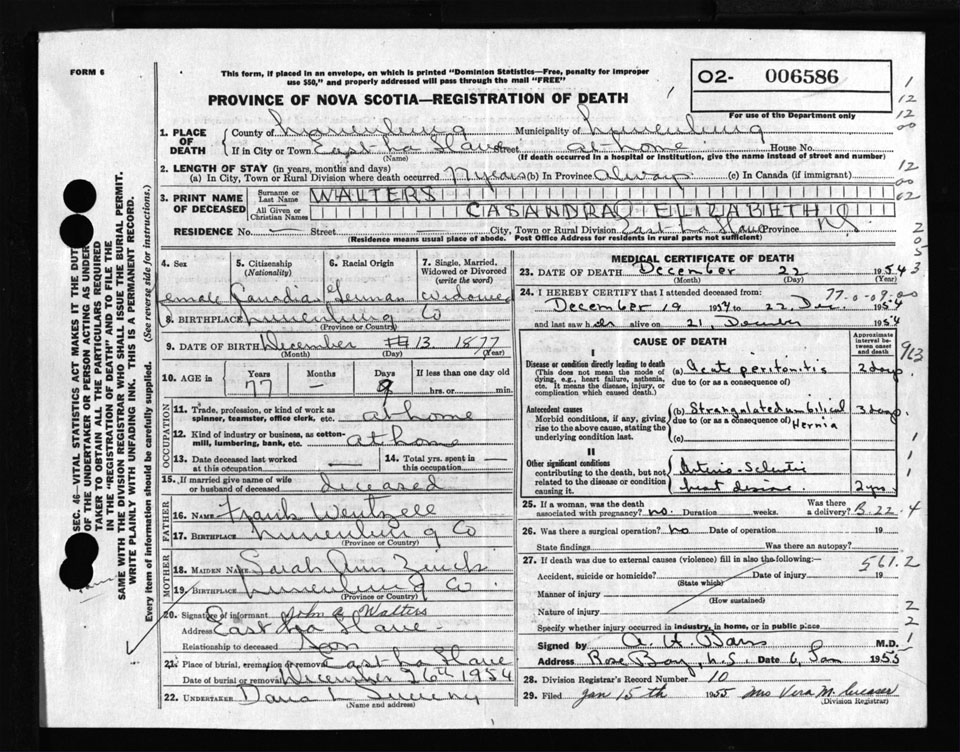 FORM 6
This form, if placed in an envelope, on which is printed "Dominion Statistics—Free, penalty for improper
use $50," and properly addressed will pass through the mail "FREE"
O2- 006586
For use of the Department only
PROVINCE OF NOVA SCOTIA—REGISTRATION OF DEATH
1. PLACE OF DEATH
County of Lunenburg Municipality of Lunenburg
If in City or Town East La Have Street at home House No.
(Name) (If death occurred in a hospital or institution, give the name instead of street and number)
2. LENGTH OF STAY (in years, months and days)
(a) In City, Town or Rural Division where death occurred 77 years (b) In Province Always (c) In Canada (if immigrant)
3. PRINT NAME OF DECEASED
Surname or Last Name WALTERS
All Given or Christian Names CASANDRA ELIZABETH
RESIDENCE No. — Street City, Town or Rural Division East La Have Province N.S.
(Residence means usual place of abode. Post Office Address for residents in rural parts not sufficient)
4. Sex 5. Citizenship (Nationality) 6. Racial Origin 7. Single, Married, Widowed or Divorced (write the word)
Female Canadian German widowed
8. BIRTHPLACE Lunenburg Co
(Province or Country)
9. DATE OF BIRTH December 13 1877
(Month) (Day) (Year)
10. AGE in Years Months Days If less than one day
77 — 9 hrs. or min.
OCCUPATION
11. Trade, profession, or kind of work as spinner, teamster, office clerk, etc. at home
12. Kind of industry or business, as cotton-mill, lumbering, bank, etc. at home
13. Date deceased last worked at this occupation — 14. Total yrs. spent in this occupation —
15. If married give name of wife or husband of deceased deceased
FATHER
16. NAME Frank Wentzell
17. BIRTHPLACE Lunenburg Co
(Province or Country)
MOTHER
18. MAIDEN NAME Sarah Ann Zinck
19. BIRTHPLACE Lunenburg Co.
(Province or Country)
20. Signature of informant John Walters
Address East La Have
Relationship to deceased Son
21. Place of burial, cremation or removal East La Have
Date of burial or removal December 26th 1954
22. UNDERTAKER Dana L Sweeny
(Name and address)
MEDICAL CERTIFICATE OF DEATH
23. DATE OF DEATH December 22 1954
(Month) (Day) (Year)
24. I HEREBY CERTIFY that I attended deceased from:
77-0-09-00
December 19 1954 to 22, Dec. 1954
and last saw her alive on 21, December 1954
CAUSE OF DEATH
Approximate interval between onset and death
I
Disease or condition directly leading to death
(This does not mean the mode of dying, e.g., heart failure, asthenia, etc. It means the disease, injury, or complication which caused death.)
(a) Acute peritonitis 2 days
due to (or as a consequence of)
Antecedent causes
Morbid conditions, if any, giving rise to the above cause, stating the underlying condition last.
(b) Strangulated umbilical 3 days
due to (or as a consequence of) Hernia
(c)
II
Other significant conditions
contributing to the death, but not related to the disease or condition causing it.
Arterio-Sclerotic
heart disease 2 yrs.
25. If a woman, was the death associated with pregnancy? no. Duration weeks. Was there a delivery?
26. Was there a surgical operation? no Date of operation 19
State findings Was there an autopsy?
27. If death was due to external causes (violence) fill in also the following:—
561.2
Accident, suicide or homicide? Date of injury 19
(State which)
Manner of injury
(How sustained)
Nature of injury
Specify whether injury occurred in industry, in home, or in public place
Signed by M.D.
Address Rose Bay, N.S. Date 6, Jan 1955
28. Division Registrar's Record Number 10
29. Filed Jan 15th 1955 Mrs Vera M. Creaser
(Division Registrar)
SEC. 46—VITAL STATISTICS ACT MAKES IT THE DUTY
OF THE UNDERTAKER OR PERSON ACTING AS UNDER-
TAKER TO OBTAIN ALL THE PARTICULARS REQUIRED
IN THE "REGISTRATION OF DEATH" AND TO FILE THE
SAME WITH THE DIVISION REGISTRAR WHO SHALL ISSUE THE BURIAL PERMIT.
WRITE PLAINLY WITH UNFADING INK. THIS IS A PERMANENT RECORD.
Every item of information should be carefully supplied. (See reverse side for instructions.)